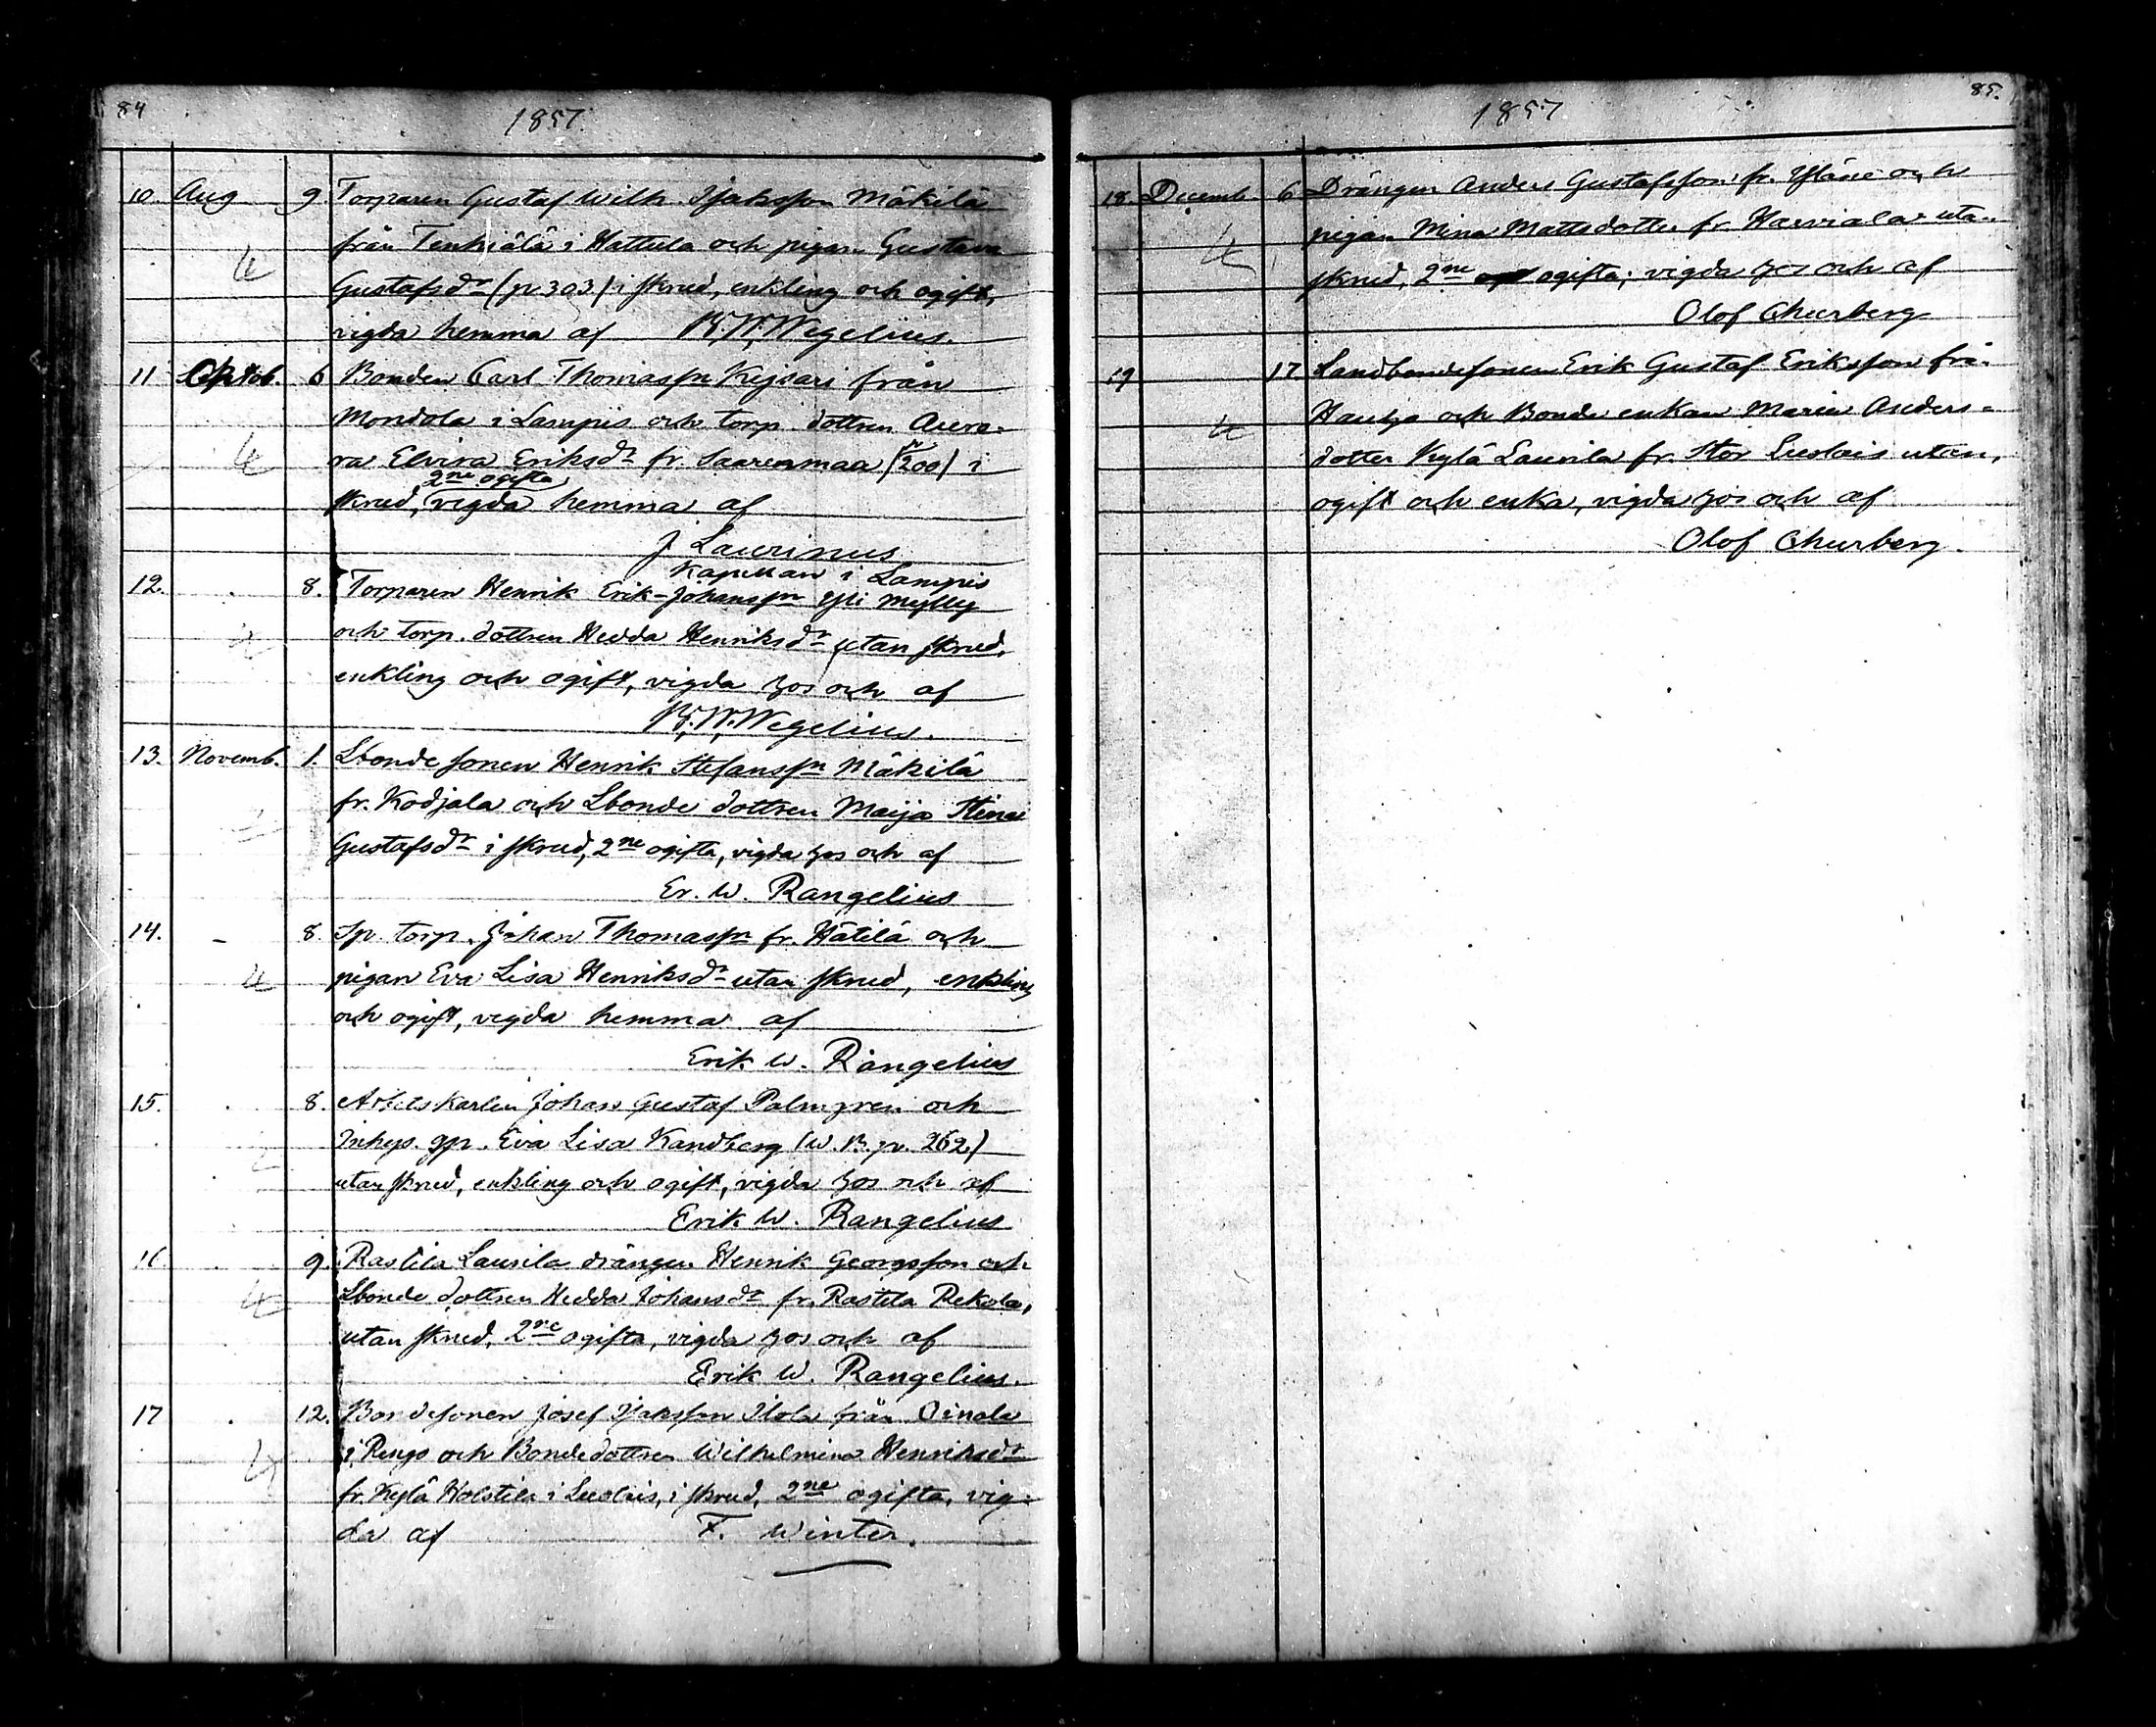 84
1857.
10. Aug 9. Torparen Gustaf Wilh. Isaksson Mäkilä
från Tenhiälä i Hattula och pigan Gustava
Gustafsdr (p 303) i skrud, enkling och ogift,
vigda hemma af K. W. Wegelius.
11 Oktob. 6 Bonden Carl Thomasson Kejsari från
Mondola i Lampis och torp. dottren Aura-
ra Elvira Eriksdr fr. Saarenmaa (p 200) i
2ne ogifta
skrud, vigda hemma af
J Laurinus
Kapellan i Lampis
12. . 8. Torparen Henrik Erik-Johansson Mylly
och torp. dottren Hedda Henriksdr utan skrud,
enkling och ogift, vigda hos och af
K. W. Wegelius.
13. Novemb. 1. Lbonde sonen Henrik Stefansson Mäkilä
fr. Kodjala och Lbonde dottren Maija Stina
Gustafsdr i skrud, 2ne ogifta, vigda hos och af
Er. W. Rangelius
14. - 8. Sp. torp. Johan Thomasson fr. Hätilä och
pigan Eva Lisa Henriksdr utan skrud, enkling
och ogift, vigda hemma af
Erik W. Rangelius
15. . 8. Arbetskarlen Johan Gustaf Palmgren och
Inhys. qp. Eva Lisa Kandberg (W. B. p. 262)
utan skrud, enkling och ogift, vigda hos och af
Erik W. Rangelius
16 . 9. Rastila Laurila drängen Henrik Georgsson och
Lbonde dottren Hedda Johansdr fr. Rastila Rekola,
utan skrud, 2ne ogifta, vigda hos och af
Erik W. Rangelius.
17 . 12. Bondesonen Josef Isaksson Ilola från Oinala
i Rengo och Bondedottren Wilhelmina Henriksdr
fr. Kylä Holstila i Luolais, i skrud, 2ne ogifta, vig-
da af F. Winter.
85.
1857
18. Decemb. 6 Drängen Anders Gustafsson fr. Yläne och
pigan Mina Mattsdotter fr. Harviala utan
skrud, 2ne ogifta; vigda hos och af
Olof Churberg
19 17 Landbondesonen Erik Gustaf Eriksson från
Hauho och Bonde enkan Maria Anders-
dotter Kylä Laurila fr. Stor Luolais utan,
ogift och enka, vigda hos och af
Olof Churberg.